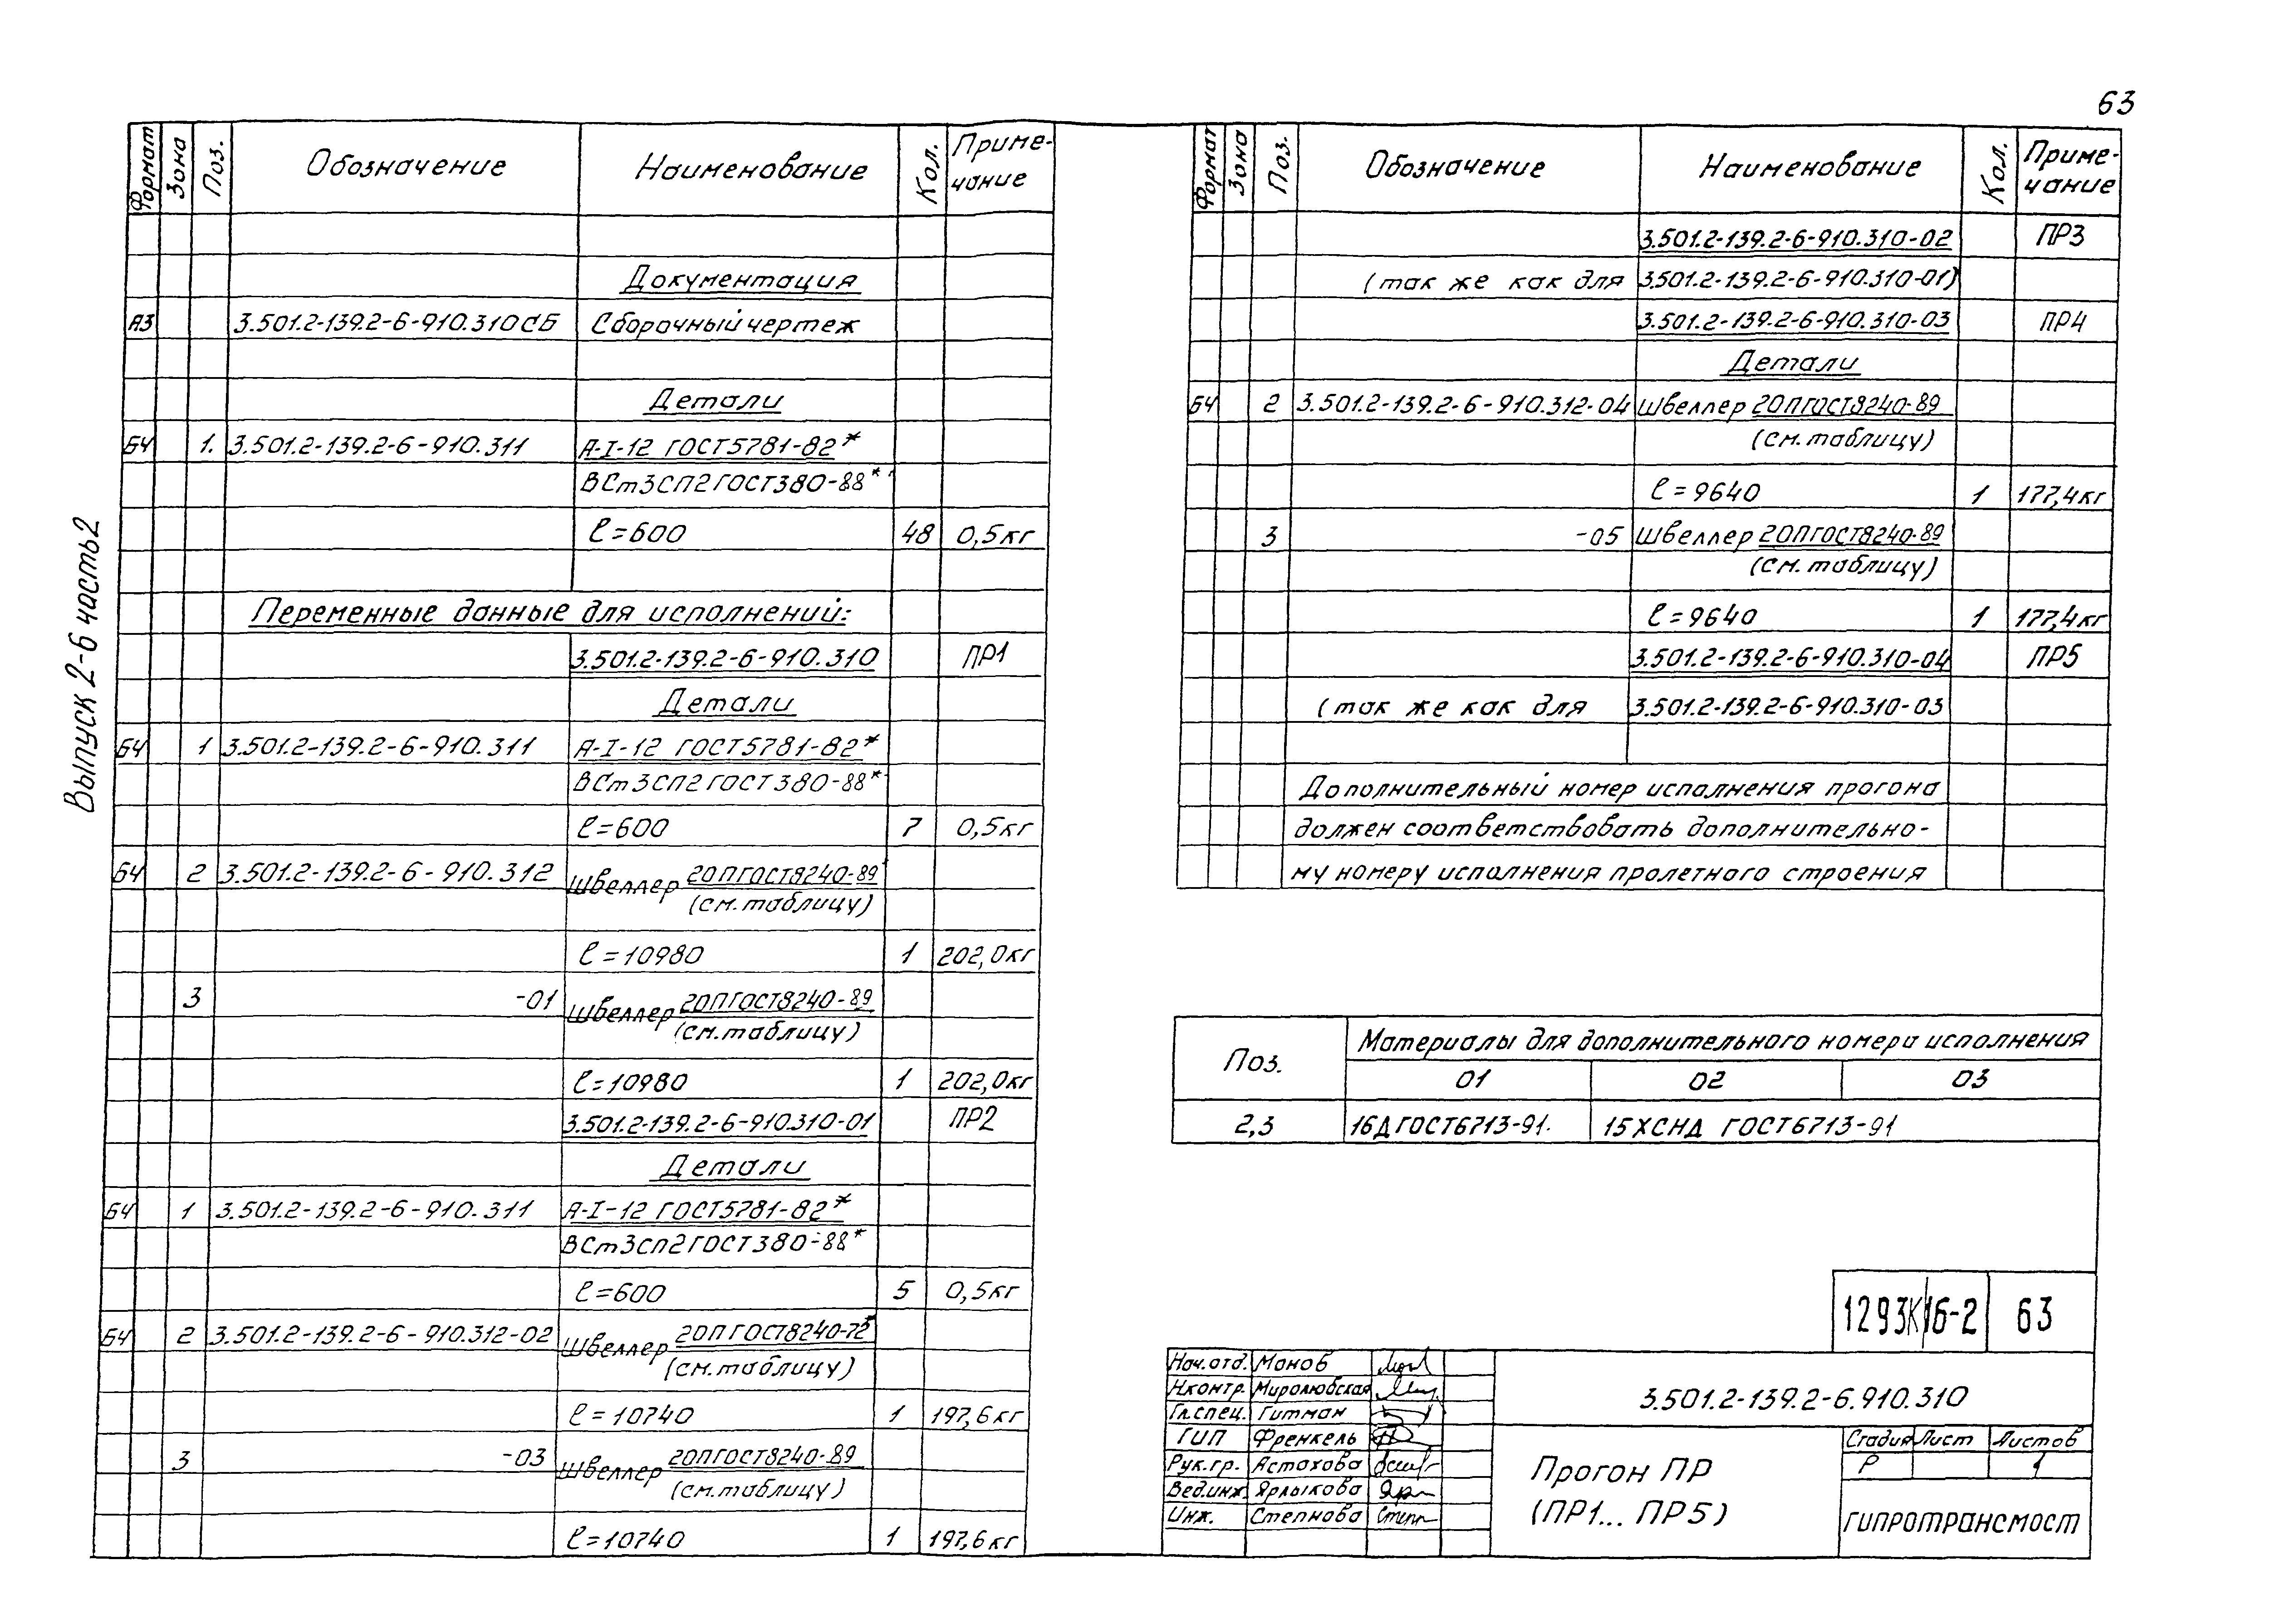 63
Выпуск 2-6 часть2
Формат Зона Поз. Обозначение Наименование Кол. Приме-
чание
Документация
А3 3.501.2-139.2-6-910.310СБ Сборочный чертеж
Детали
БЧ 1. 3.501.2-139.2-6-910.311 А-I-12 ГОСТ5781-82*
ВСт3СП2ГОСТ380-88*
ℓ=600 48 0,5кг
Переменные данные для исполнений:
3.501.2-139.2-6-910.310 ПР1
Детали
БЧ 1 3.501.2-139.2-6-910.311 А-I-12 ГОСТ5781-82*
ВСт3СП2ГОСТ380-88*
ℓ=600 7 0,5кг
БЧ 2 3.501.2-139.2-6-910.312 Швеллер 20ПГОСТ8240-89
(см.таблицу)
ℓ=10980 1 202,0кг
3 -01 Швеллер 20ПГОСТ8240-89
(см.таблицу)
ℓ=10980 1 202,0кг
3.501.2-139.2-6-910.310-01 ПР2
Детали
БЧ 1 3.501.2-139.2-6-910.311 А-I-12 ГОСТ5781-82*
ВСт3сп2ГОСТ380-88*
ℓ=600 5 0,5кг
БЧ 2 3.501.2-139.2-6-910.312-02 Швеллер 20ПГОСТ8240-72*
(см.таблицу)
ℓ=10740 1 197,6кг
3 -03 Швеллер 20ПГОСТ8240-89
(см.таблицу)
ℓ=10740 1 197,6кг
Формат Зона Поз. Обозначение Наименование Кол. Приме-
чание
3.501.2-139.2-6-910.310-02 ПР3
(так же как для 3.501.2-139.2-6-910.310-01)
3.501.2-139.2-6-910.310-03 ПР4
Детали
БЧ 2 3.501.2-139.2-6-910.312-04 Швеллер 20ПГОСТ8240-89
(см.таблицу)
ℓ=9640 1 177,4кг
3 -05 Швеллер 20ПГОСТ8240-89
(см.таблицу)
ℓ=9640 1 177,4кг
3.501.2-139.2-6-910.310-04 ПР5
(так же как для 3.501.2-139.2-6-910.310-03
Дополнительный номер исполнения прогона
должен соответствовать дополнительно-
му номеру исполнения пролетного строения
Поз. Материалы для дополнительного номера исполнения
01 02 03
2,3 16ДГОСТ6713-91. 15ХСНД ГОСТ6713-91
1293К/16-2 63
Нач.отд. Монов
Н.контр. Миролюбская
Гл.спец. Гитман
ГИП Френкель
Рук.гр. Астахова
Вед.инж. Ярлыкова
Инж. Степнова
3.501.2-139.2-6.910.310
Прогон ПР
(ПР1... ПР5)
Стадия Лист Листов
Р 1
ГИПРОТРАНСМОСТ